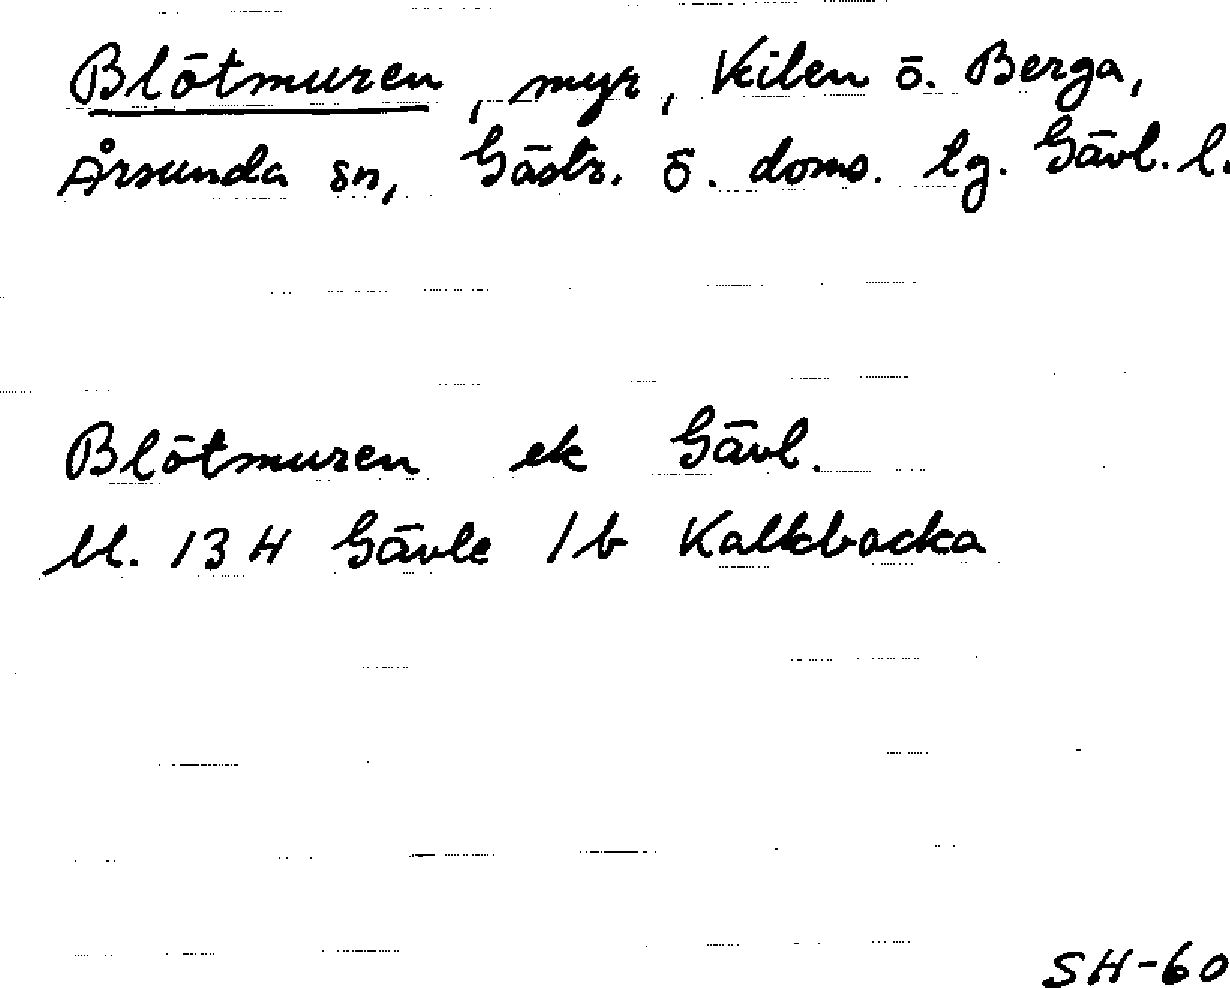 Blötmuren, myr, Kilen ö. Berga,
Årsunda sn, Gästr. ö. doms. lg. Gävl. l.
Blötmuren ek Gävl.
bl. 13 H Gävle 1 b Kalkbacka
SH-60